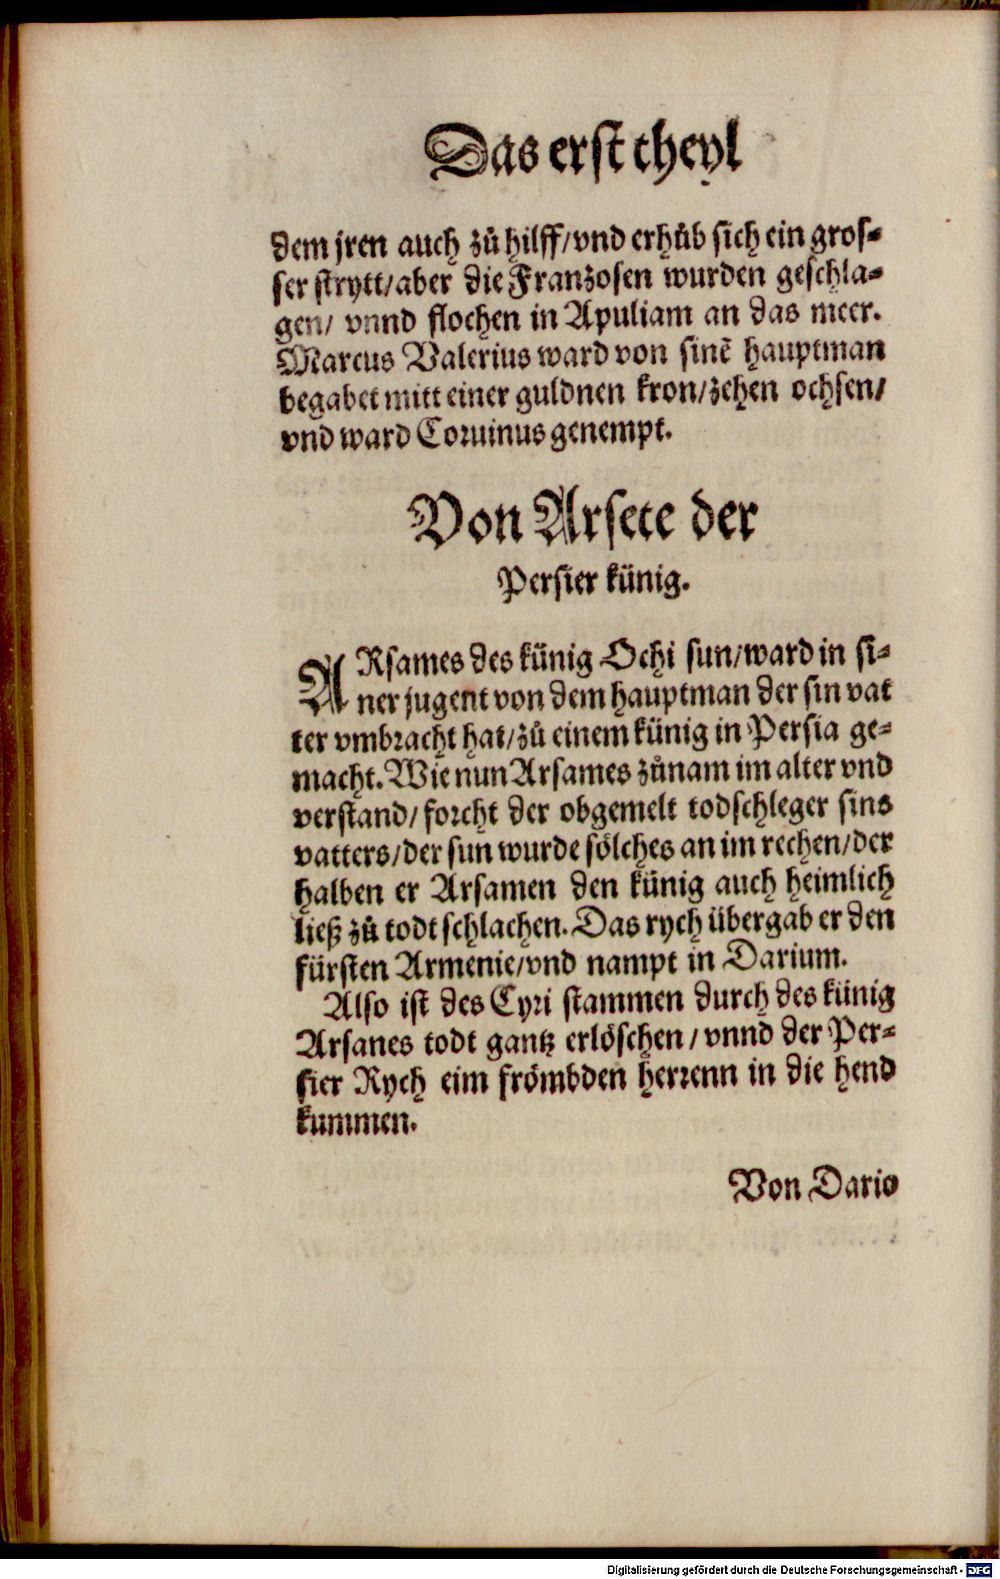 Das erst theyl
dem jren auch zů hilff/ vnd erhůb sich ein gros⸗
ser strytt/ aber die Franzosen wurden geschla⸗
gen/ vnnd flochen in Apuliam an das meer.
Marcus Valerius ward von sinē hauptman
begabet mitt einer guldnen kron/ zehen ochsen/
vnd ward Coruinus genempt.
Von Arsete der
Persier künig.
ARsames des künig Ochi sun/ ward in si⸗
ner jugent von dem hauptman der sin vat
ter vmbracht hat/ zů einem künig in Persia ge⸗
macht. Wie nun Arsames zůnam im alter vnd
verstand/ forcht der obgemelt todschleger sins
vatters/ der sun wurde sölches an im rechen/ der
halben er Arsamen den künig auch heimlich
ließ zů todt schlachen. Das rych übergab er den
fürsten Armenie/ vnd nampt in Darium.
Also ist des Cyri stammen durch des künig
Arsanes todt gantz erlöschen/ vnnd der Per⸗
sier Rych eim frömbden herrenn in die hend
kummen.
Von Dario
Digitalisierung gefördert durch die Deutsche Forschungsgemeinschaft - DFG